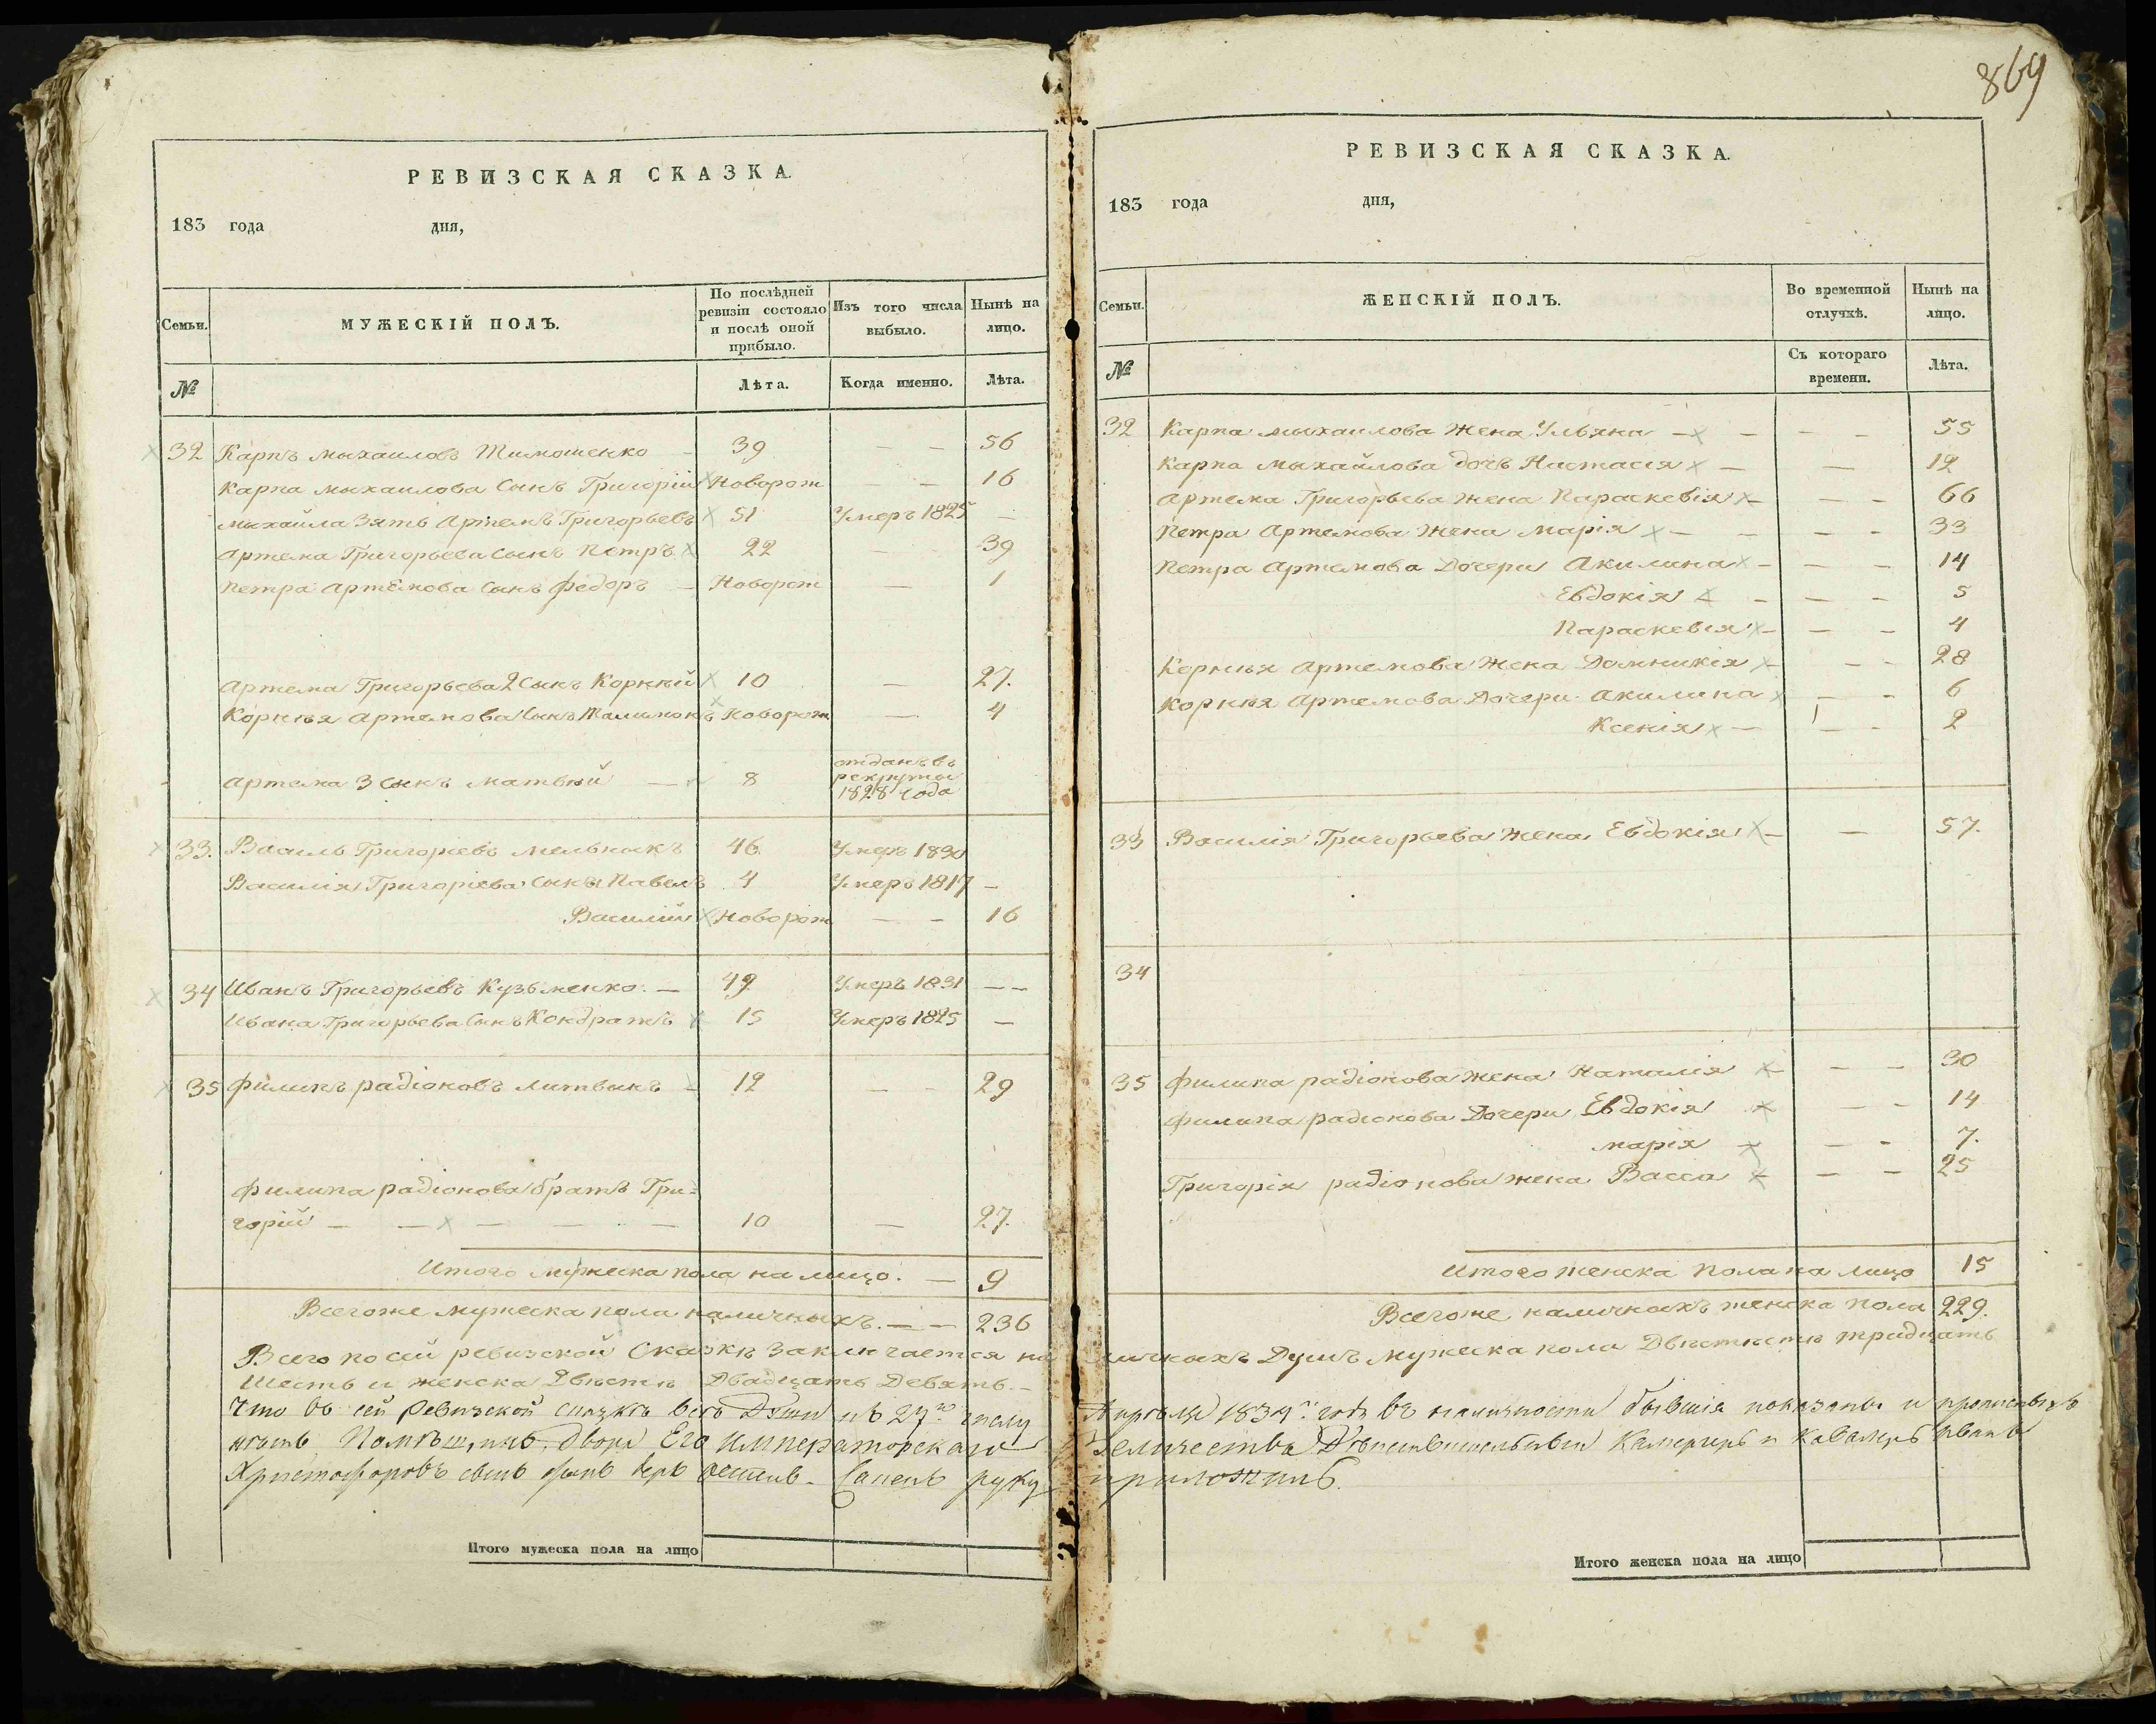 869
РЕВИЗСКАЯ СКАЗКА.
183 года дня,
Семьи.
МУЖЕСКІЙ ПОЛЪ.
По послѣдней
ревизіи состояло
и послѣ оной
прибыло.
Изъ того числа
выбыло.
Нынѣ на
лицо.
№
Лѣта.
Когда именно.
Лѣта.
32 Карпъ Михаиловъ Тимошенко — 39 — — 56
Карпа Михаилова Сынъ Григорій Новорож — — 16
Михайла Зять Артемъ Григорьевъ 51 Умеръ 1825 —
Артема Григорьева Сынъ Петръ 22 — — 39
Петра Артемова Сынъ Федоръ — Новорож — 1
Артема Григорьева 2 Сынъ Корнѣй 10 — 27.
Корнѣя Артемова Сынъ Новорож — 4
Артема 3 Сынъ Матвѣй — 8 отданъ въ
рекруты
1828 года
33. Василь Григоріевъ Мельникъ 46 Умеръ 1830
Василія Григоріева Сынъ Павелъ 4 Умеръ 1817 —
Василій Новорож — — 16
34 Иванъ Григорьевъ Кузьменко. — 49 Умеръ 1831 — —
Ивана Григорьева Сынъ Кондратъ 15 Умеръ 1825 —
35 Филипъ радіоновъ Литвинъ — 12 — — 29
Филипа радіонова братъ Гри=
горій — — — — — 10 — 27.
Итого мужеска пола на лицо. — 9
Всегоже мужеска пола наличныхъ. — — 236
РЕВИЗСКАЯ СКАЗКА.
183 года дня,
Семьи.
ЖЕНСКІЙ ПОЛЪ.
Во временной
отлучкѣ.
Нынѣ на
лицо.
№
Съ котораго
времени.
Лѣта.
32 Карпа Михаилова Жена Ульяна — — — — 55
Карпа Михайлова дочь Настасія — — 12
Артема Григорьева Жена Параскевія — — — 66
Петра Артемова Жена Марія — — — — 33
Петра Артемова Дочери Акилина — — — 14
Евдокія — — — 5
Параскевія — — — 4
Корнѣя Артемова Жена Домникія — — — 28
Корнѣя Артемова Дочери Акилина — — 6
Ксенія — — — 2
33 Василія Григорьева Жена Евдокія — — 57.
34
35 Филипа радіонова Жена Наталія — — — 30
Филипа радіонова Дочери Евдокія — — 14
Марія — — — 7.
Григорія радіонова жена Васса — — — 25
Итого женска пола на лицо 15
Всегоже наличныхъ женска пола 229.
Всего по сей ревизской Сказкѣ заключается наличныхъ Душъ мужеска пола Двѣстѣ тридцать
Шесть и женска Двѣстѣ Двадцать Девять. —
Что въ сей Ревизской сказкѣ всѣ Души къ 27го числу Апрѣля 1834 года въ наличности бывшія показаны и прописныхъ
нѣтъ Помѣщикъ Двора Его Императорскаго Величества Дѣйствительный Камергеръ и Кавалеръ Иванъ
Христофоровъ сынъ руку приложилъ.
Итого мужеска пола на лицо
Итого женска пола на лицо